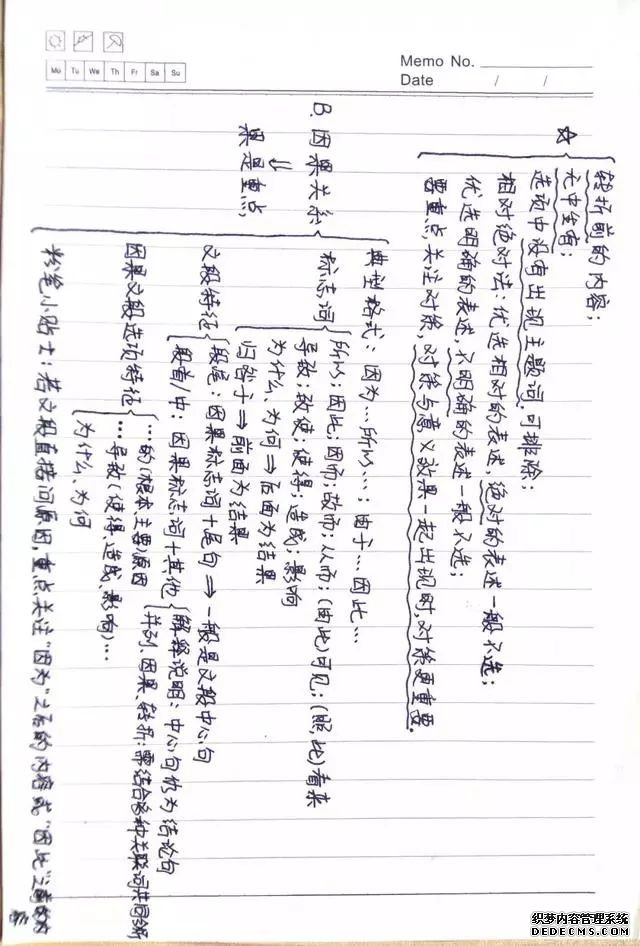 Memo No.
Date / /
Mo Tu We Th Fr Sa Su
转折前的内容；
☆ 无中生有：
选项中没有出现主题词,可排除；
相对绝对法：优选相对的表述，绝对的表述一般不选；
优选明确的表述，不明确的表述一般不选；
要重点关注对策，对策与意义效果一起出现时，对策更重要。
B. 因果关系
⇓
果是重点
典型格式：因为…所以…；由于…因此…
标志词
所以；因此；因而；故而；从而；(由此)可见；(照此)看来
导致；致使；使得；造成；影响
为什么、为何⇒后面为结果
归咎于⇒前面为结果
文段特征
段尾：因果标志词+尾句⇒一般是文段中心句
段首/中：因果标志词+其他
解释说明：中心句仍为结论句
并列、因果、转折：需结合各种关联词共同分析
因果文段选项特征
…的(根本主要)原因
…导致(使得、造成、影响)…
为什么、为何
粉笔小贴士：若文段直接问原因，重点关注“因为”之后的内容或“因此”之前的内容
织梦内容管理系统
DEDECMS.COM